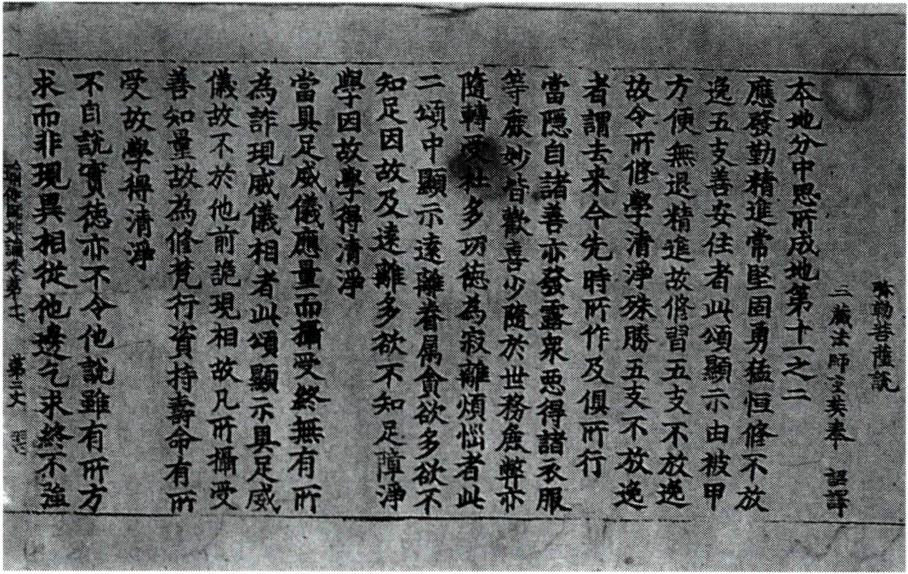 弥勒菩薩說
三藏法師玄奘奉　詔譯
本地分中思所成地第十一之二
應發勤精進常堅固勇猛恒修不放
逸五支善安住者此頌顯示由被甲
方便無退精進故修習五支不放逸
故令所修學清淨殊勝五支不放逸
者謂去來今先時所作及俱所行
當隱自諸善亦發露衆惡得諸衣服
等麁妙皆歡喜少隨於世務麁弊亦
隨轉受杜多功德為寂離煩惱者此
二頌中顯示遠離眷屬貪欲多欲不
知足因故及遠離多欲不知足障淨
學因故學得清淨
當具足威儀應量而攝受終無有所
為詐現威儀相者此頌顯示具足威
儀故不於他前詭現相故凡所攝受
善知量故為修梵行資持壽命有所
受故學得清淨
不自說實德亦不令他說雖有所方
瑜伽師地論卷第十七　第二丈
求而非現異相從他邊乞求終不強